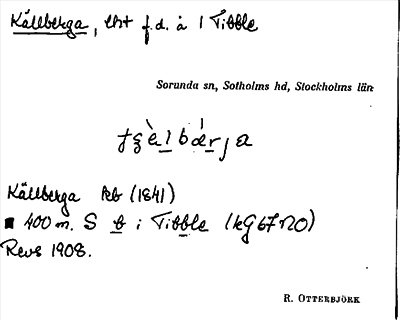 Källberga, lht f.d. å 1 Tibble
Sorunda sn, Sotholms hd, Stockholms län
Källberga kb (1841)
400 m. S b i Tibble (kg 67 NO)
Revs 1908.
R. OTTERBJÖRK